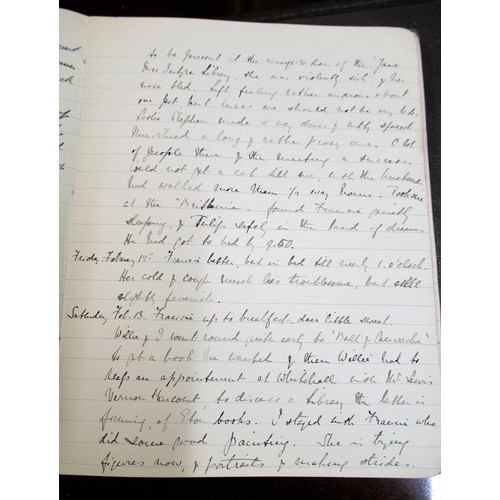 to be present at the inauguration of the "Jane
Library. she was violently sick & her
nose bled. Left feeling rather anxious about
our pet, but knew we should not be very late.
Leslie Stephen made a very clever & witty speech.
a long & rather prosy one. A lot
of people there & the meeting a success.
Could not get a cab till we, with the
had walked more than 1/2 way home. Took one
at the "Britannia" - found Francie gently
sleeping & Tulip safely in the land of dreams
He had got to bed by 9.50.
Friday February 12th. Francie better, but in bed till nearly 1. o'clock.
Her cold & cough much less troublesome, but still
slightly feverish.
Saturday Feb. 13. Francie up to breakfast - dear little sweet.
Willie & I went round quite early to "Ball &
to get a book he wanted & then Willie had to
keep an appointment at Whitehall with Mr Lewis
Vernon Harcourt to discuss a Library the latter is
forming, of Eton books. I stayed with Francie who
did some good painting. She is trying
figures now, & portraits & making strides.